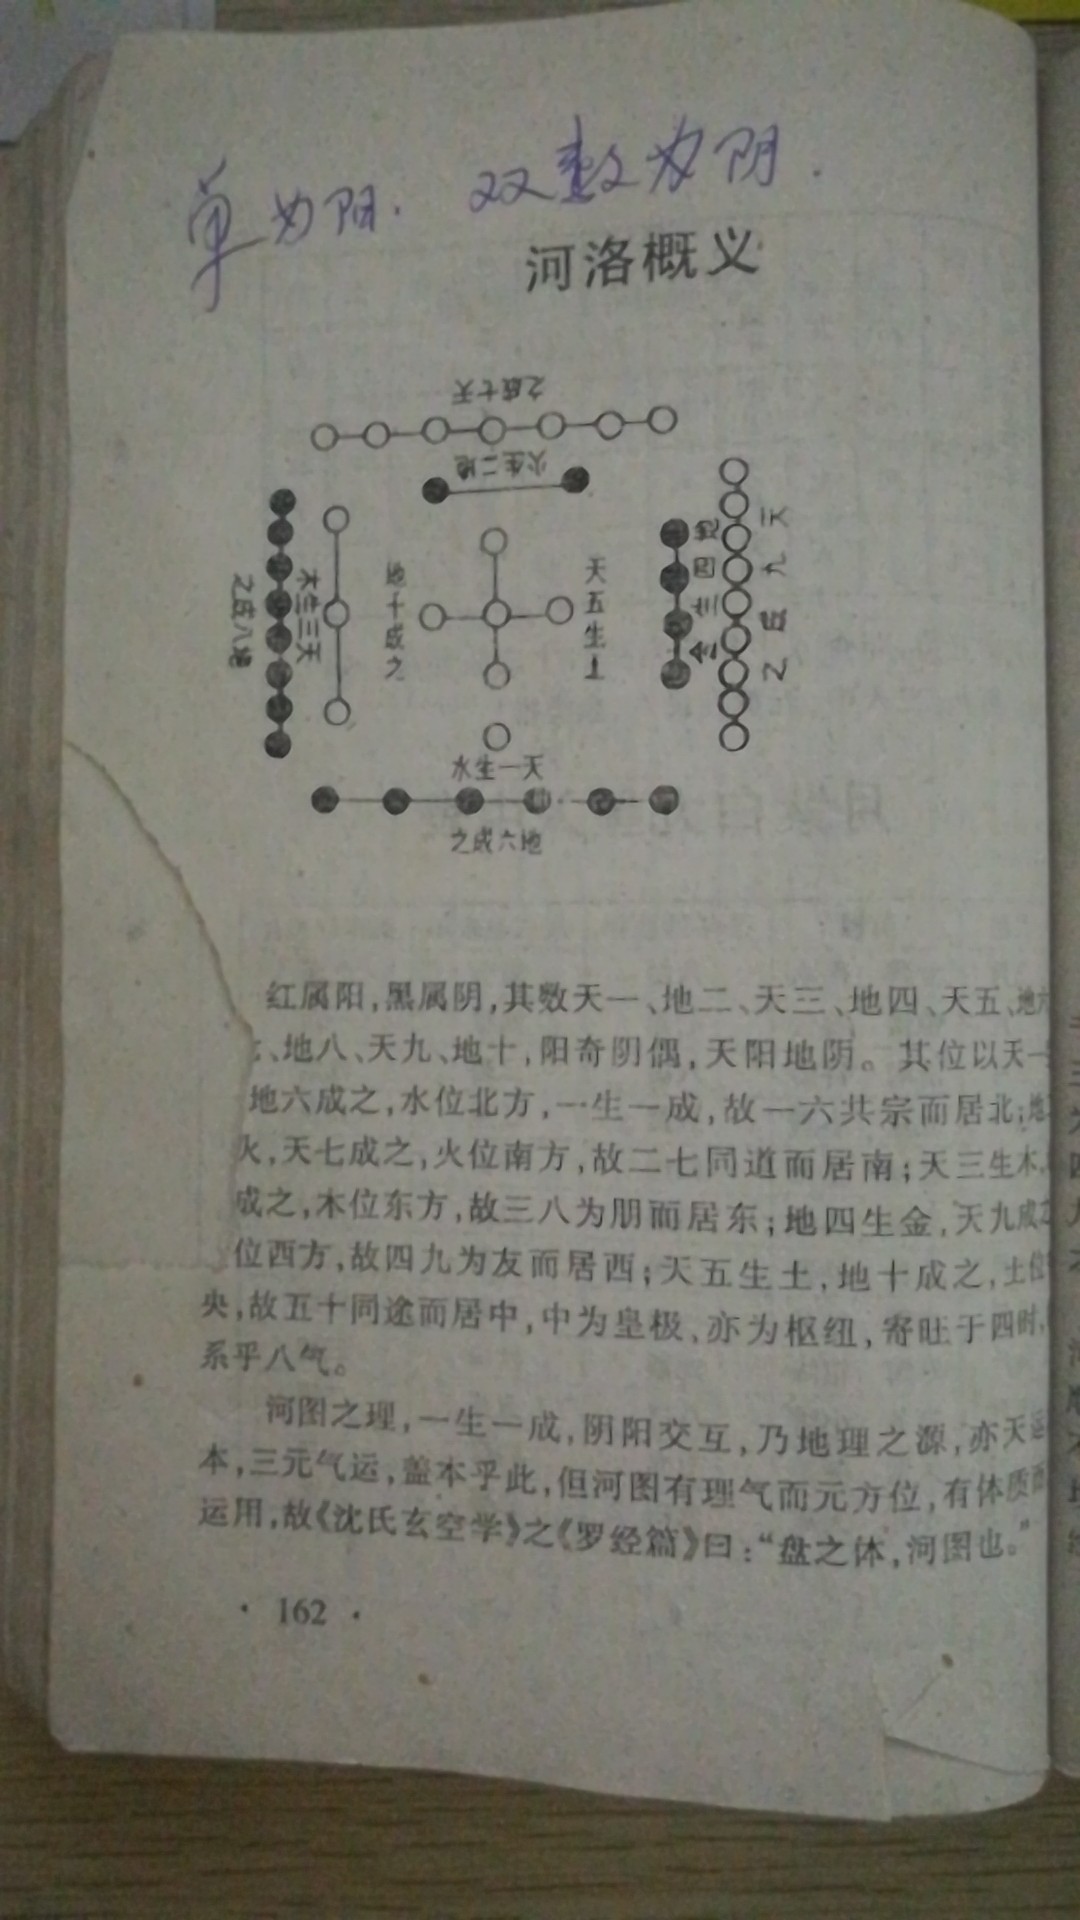 单为阳. 双数为阴.
河洛概义
之成七天
火生二地
之成八地
木生三天
地十成之
天五生土
金生四地
之成九天
水生一天
之成六地
红属阳,黑属阴,其数天一、地二、天三、地四、天五、地六
、地八、天九、地十,阳奇阴偶,天阳地阴。其位以天一
地六成之,水位北方,一生一成,故一六共宗而居北;地
火,天七成之,火位南方,故二七同道而居南;天三生木,
成之,木位东方,故三八为朋而居东;地四生金,天九成之
位西方,故四九为友而居西;天五生土,地十成之,土位
央,故五十同途而居中,中为皇极,亦为枢纽,寄旺于四时,
系乎八气。
河图之理,一生一成,阴阳交互,乃地理之源,亦天运
本,三元气运,盖本乎此,但河图有理气而元方位,有体质而
运用,故《沈氏玄空学》之《罗经篇》曰:“盘之体,河图也。”
· 162 ·